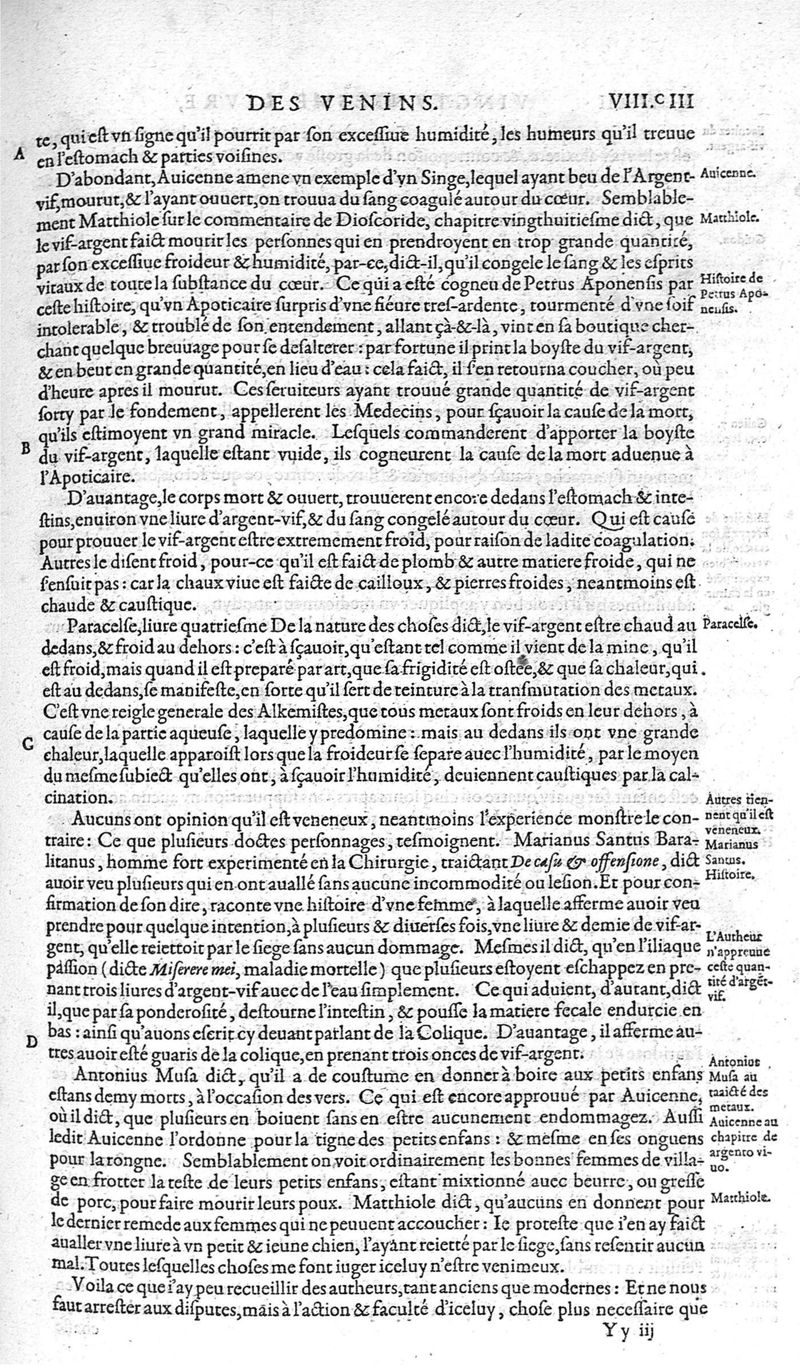 DES VENINS. VIII.c III
te, qui eſt vn ſigne qu'il pourrit par ſon exceſſiue humidité, les humeurs qu'il treuue
A
en l'eſtomach & parties voiſines.
D'abondant, Auicenne amene vn exemple d'vn Singe, lequel ayant beu de l'Argent-
Auicenne.
vif, mourut, & l'ayant ouuert, on trouua du ſang coagulé autour du cœur. Semblable-
ment Matthiole ſur le commentaire de Dioſcoride, chapitre vingthuitieſme dict, que
Matthiole.
le vif-argent faict mourir les perſonnes qui en prendroyent en trop grande quantité,
par ſon exceſſiue froideur & humidité, par-ce, dict-il, qu'il congele le ſang & les eſprits
vitaux de toute la ſubſtance du cœur. Ce qui a eſté cogneu de Petrus Aponenſis par
Hiſtoire de
Petrus Apo-
nenſis.
ceſte hiſtoire, qu'vn Apoticaire ſurpris d'vne fiéure treſ-ardente, tourmenté d'vne ſoif
intolerable, & troublé de ſon entendement, allant çà-&-là, vint en ſa boutique cher-
chant quelque breuuage pour ſe deſalterer : par fortune il print la boyſte du vif-argent,
& en beut en grande quantité, en lieu d'eau : cela faict, il ſ'en retourna coucher, où peu
d'heure apres il mourut. Ces ſeruiteurs ayant trouué grande quantité de vif-argent
ſorty par le fondement, appellerent les Medecins, pour ſçauoir la cauſe de la mort,
qu'ils eſtimoyent vn grand miracle. Leſquels commanderent d'apporter la boyſte
B
du vif-argent, laquelle eſtant vuide, ils cogneurent la cauſe de la mort aduenue à
l'Apoticaire.
D'auantage, le corps mort & ouuert, trouuerent encore dedans l'eſtomach & inte-
ſtins, enuiron vne liure d'argent-vif, & du ſang congelé autour du cœur. Qui eſt cauſe
pour prouuer le vif-argent eſtre extremement froid, pour raiſon de ladite coagulation.
Autres le diſent froid, pour-ce qu'il eſt faict de plomb & autre matiere froide, qui ne
ſenſuit pas : car la chaux viue eſt faicte de cailloux, & pierres froides, neantmoins eſt
chaude & cauſtique.
Paracelſe, liure quatrieſme De la nature des choſes dict, le vif-argent eſtre chaud au
Paracelſe.
dedans, & froid au dehors : c'eſt à ſçauoir, qu'eſtant tel comme il vient de la mine, qu'il
eſt froid, mais quand il eſt preparé par art, que ſa frigidité eſt oſtée, & que ſa chaleur, qui
eſt au dedans, ſe manifeſte, en ſorte qu'il ſert de teinture à la tranſmutation des metaux.
C'eſt vne reigle generale des Alkemiſtes, que tous metaux ſont froids en leur dehors, à
cauſe de la partie aqueuſe, laquelle y predomine : mais au dedans ils ont vne grande
C
chaleur, laquelle apparoiſt lors que la froideur ſe ſepare auec l'humidité, par le moyen
du meſme ſubiect qu'elles ont, à ſçauoir l'humidité, deuiennent cauſtiques par la cal-
cination.
Aucuns ont opinion qu'il eſt veneneux, neantmoins l'experience monſtre le con-
Autres tien-
nent qu'il eſt
veneneux.
traire : Ce que pluſieurs doctes perſonnages, teſmoignent. Marianus Santus Bara-
Marianus
Santus.
litanus, homme fort experimenté en la Chirurgie, traictant De caſu & offenſione, dict
Hiſtoire.
auoir veu pluſieurs qui en ont auallé ſans aucune incommodité ou leſion. Et pour con-
firmation de ſon dire, raconte vne hiſtoire d'vne femme, à laquelle afferme auoir veu
prendre pour quelque intention, à pluſieurs & diuerſes fois, vne liure & demie de vif-ar-
gent, qu'elle reiettoit par le ſiege ſans aucun dommage. Meſmes il dict, qu'en l'iliaque
L'Autheur
n'appreuue
ceſte quan-
tité d'argēt-
vif.
paſſion (dicte Miſerere mei, maladie mortelle) que pluſieurs eſtoyent eſchappez en pre-
nant trois liures d'argent-vif auec de l'eau ſimplement. Ce qui aduient, d'autant, dict
il, que par ſa ponderoſité, deſtourne l'inteſtin, & pouſſe la matiere fecale endurcie en
bas : ainſi qu'auons eſcrit cy deuant parlant de la Colique. D'auantage, il afferme au-
D
tres auoir eſté guaris de la colique, en prenant trois onces de vif-argent.
Antonius Muſa dict, qu'il a de couſtume en donner à boire aux petits enfans
Antonius
Muſa au
traicté des
metaux.
eſtans demy morts, à l'occaſion des vers. Ce qui eſt encore approuué par Auicenne,
où il dict, que pluſieurs en boiuent ſans en eſtre aucunement endommagez. Auſſi
Auicenne au
chapitre de
argento vi-
uo.
ledit Auicenne l'ordonne pour la tigne des petits enfans : & meſme en ſes onguens
pour la rongne. Semblablement on voit ordinairement les bonnes femmes de villa-
ge en frotter la teſte de leurs petits enfans, eſtant mixtionné auec beurre, ou greſſe
de porc, pour faire mourir leurs poux. Matthiole dict, qu'aucuns en donnent pour
Matthiole.
le dernier remede aux femmes qui ne peuuent accoucher : Ie proteſte que i'en ay faict
aualler vne liure à vn petit & ieune chien, l'ayant reietté par le ſiege, ſans reſentir aucun
mal. Toutes leſquelles choſes me font iuger iceluy n'eſtre venimeux.
Voila ce que i'ay peu recueillir des autheurs, tant anciens que modernes : Et ne nous
faut arreſter aux diſputes, mais à l'action & faculté d'iceluy, choſe plus neceſſaire que
Y y iij